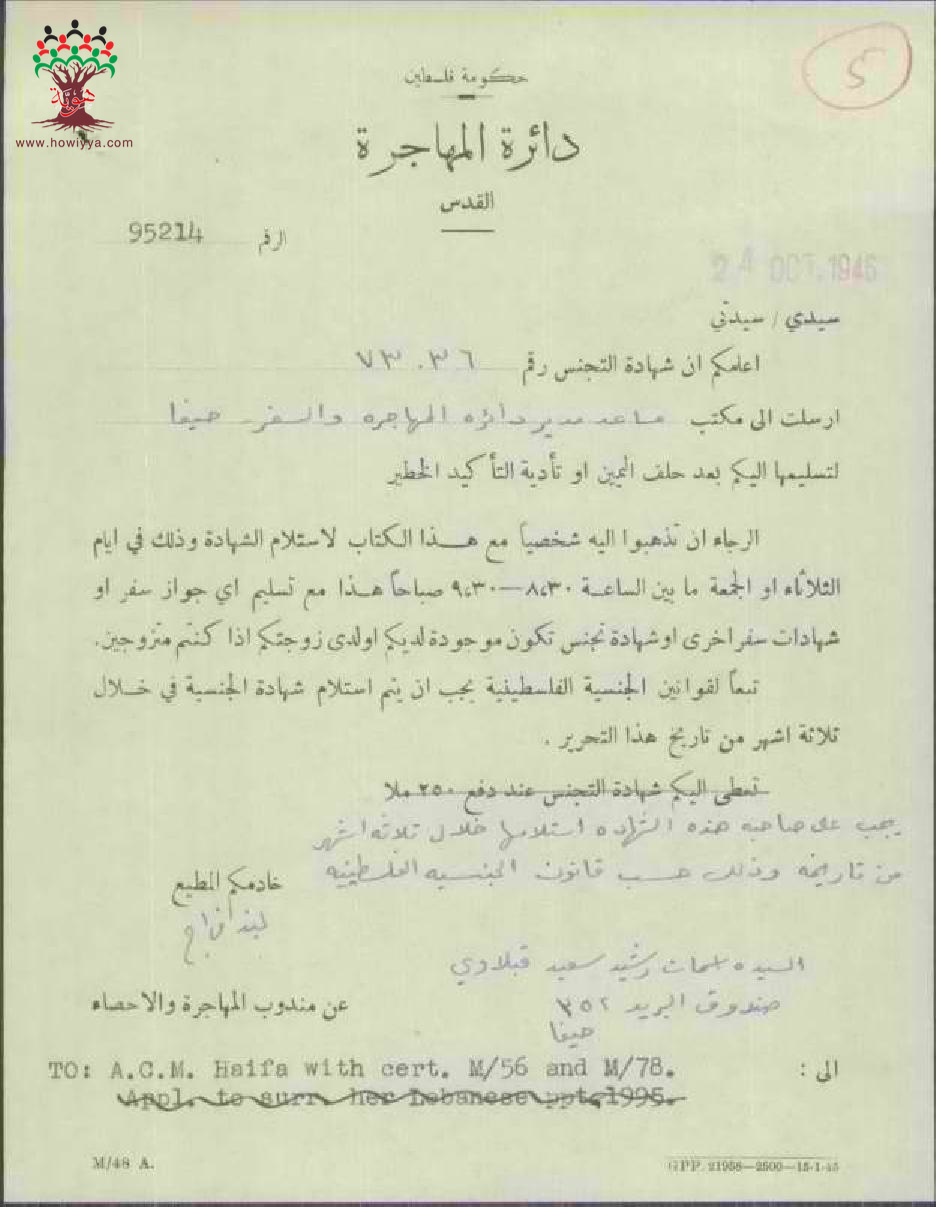 هوية
www.howiyya.com
5
حكومة فلسطين
دائرة المهاجرة
القدس
الرقم 95214
24 OCT. 1946
سيدي / سيدتي
اعلمكم ان شهادة التجنس رقم ٧٣٠٣٦
ارسلت الى مكتب مساعد مدير دائره المهاجره والسفر حيفا
لتسليمها اليكم بعد حلف اليمين او تأدية التأكيد الخطير
الرجاء ان تذهبوا اليه شخصياً مع هذا الكتاب لاستلام الشهادة وذلك في ايام
الثلاثاء او الجمعة ما بين الساعة ٨،٣٠–٩،٣٠ صباحاً هذا مع تسليم اي جواز سفر او
شهادات سفر اخرى او شهادة تجنس تكون موجودة لديكم او لدى زوجتكم اذا كنتم متزوجين.
تبعاً لقوانين الجنسية الفلسطينية يجب ان يتم استلام شهادة الجنسية في خلال
ثلاثة اشهر من تاريخ هذا التحرير .
تعطى اليكم شهادة التجنس عند دفع ٢٥٠ ملا
يجب على صاحبه هذه الشهاده استلامها خلال ثلاثه اشهر
من تاريخه وذلك حسب قانون الجنسيه الفلسطينيه
خادمكم المطيع
السيده رشيد سعيد قبلاوي
صندوق البريد ٣٥٢
حيفا
عن مندوب المهاجرة والاحصاء
الى :
TO: A.C.M. Haifa with cert. M/56 and M/78.
Appl. to surr her Lebanese ppt. 1995.
M/48 A.
GPP. 21958—2500—15-1-45